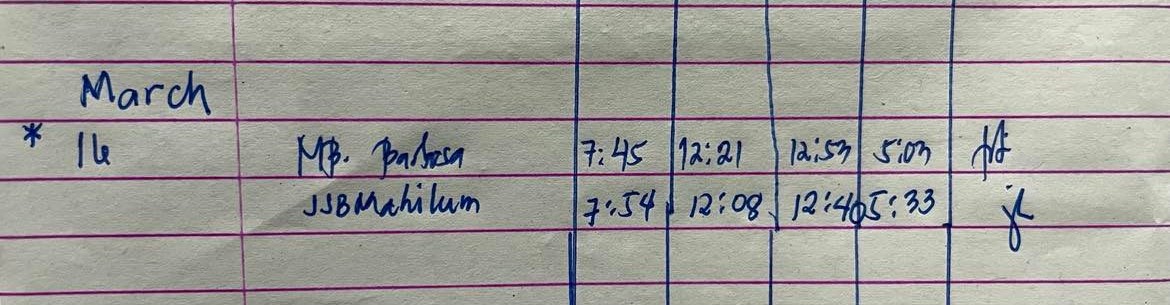 March
* 16 MB. Barbosa 7:45 12:21 12:53 5:03
JJB Mahilum 7:54 12:08 12:40 5:33